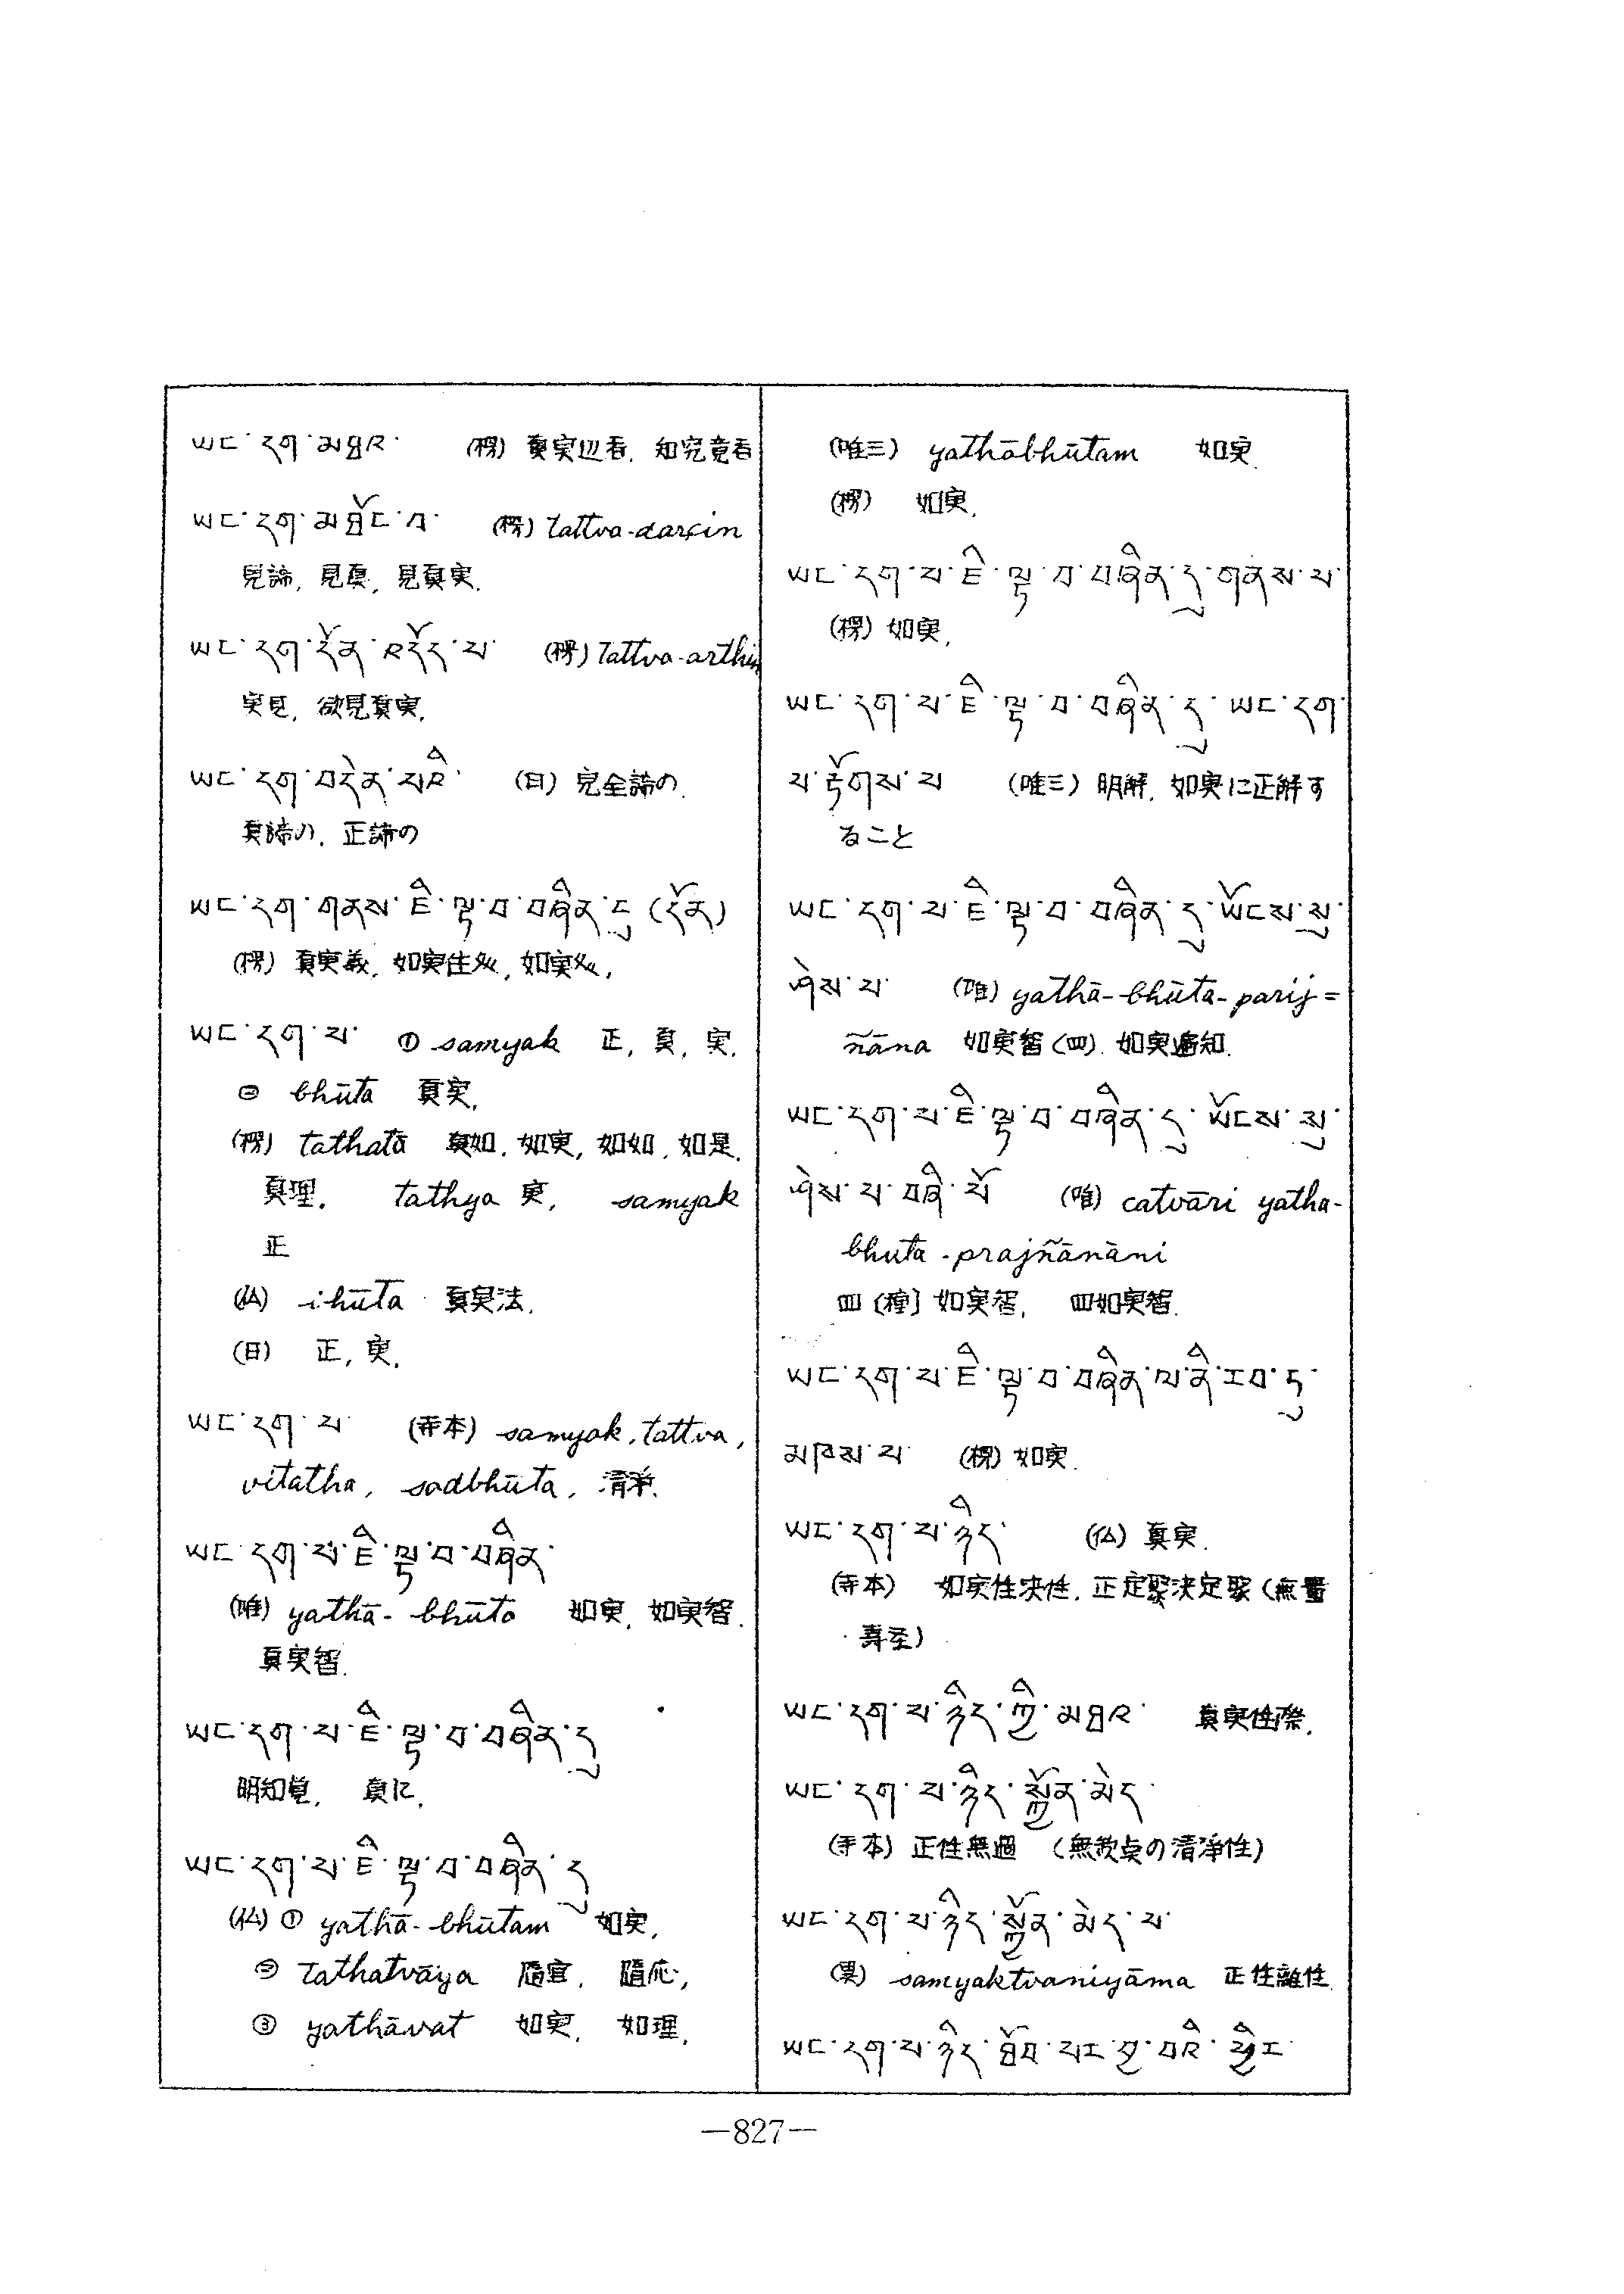 ཡང་དག་མཐར་ (楞) 真実辺者, 知究竟者
ཡང་དག་མཐོང་བ་ (楞) tattva-darśin
見諦, 見真, 見真実.
ཡང་དག་དོན་འདོད་པ་ (楞) tattva-arthin
実見, 欲見真実.
ཡང་དག་བདེན་པའི་ (日) 完全諦の,
真諦の, 正諦の
ཡང་དག་གནས་ཇི་ལྟ་བ་བཞིན་དུ (དོན)
(楞) 真実義, 如実住処, 如実処,
ཡང་དག་པ་ ① samyak 正, 真, 実.
② bhūta 真実,
(楞) tathatā 真如, 如実, 如如, 如是,
真理. tathya 実, samyak
正
(仏) ihūta 真実法.
(日) 正, 実,
ཡང་དག་པ་ (寺本) samyak, tattva,
vitatha, sadbhūta, 清浄.
ཡང་དག་པ་ཇི་ལྟ་བ་བཞིན་
(唯) yathā-bhūta 如実, 如実智,
真実智.
ཡང་དག་པ་ཇི་ལྟ་བ་བཞིན་དུ
明知覚, 真に,
ཡང་དག་པ་ཇི་ལྟ་བ་བཞིན་དུ
(仏) ① yathā-bhūtam 如実,
② tathatvāya 随宜, 随応,
③ yathāvat 如実, 如理,
(唯三) yathābhūtam 如実.
(楞) 如実,
ཡང་དག་པ་ཇི་ལྟ་བ་བཞིན་དུ་གནས་པ་
(楞) 如実,
ཡང་དག་པ་ཇི་ལྟ་བ་བཞིན་དུ་ཡང་དག་
པ་རྟོགས་པ (唯三) 明解, 如実に正解す
ること
ཡང་དག་པ་ཇི་ལྟ་བ་བཞིན་དུ་ཡོངས་སུ་
ཤེས་པ་ (唯) yathā-bhūta-parij=
ñāna 如実智(四), 如実遍知.
ཡང་དག་པ་ཇི་ལྟ་བ་བཞིན་དུ་ཡོངས་སུ་
ཤེས་པ་བཞི་པོ (唯) catvāri yatha-
bhuta-prajñānāni
四〔種〕如実智, 四如実智.
ཡང་དག་པ་ཇི་ལྟ་བ་བཞིན་ལ་ནི་ཟབ་ཏུ་
མཁས་པ་ (楞) 如実.
ཡང་དག་པ་ཉིད་ (仏) 真実.
(寺本) 如実性決性, 正定聚決定聚 (無量
寿至)
ཡང་དག་པ་ཉིད་ཀྱི་མཐར་ 真実性際,
ཡང་དག་པ་ཉིད་སྐྱོན་མེད་
(寺本) 正性無過 (無欠点の清浄性)
ཡང་དག་པ་ཉིད་སྐྱོན་མེད་པ་
(異) samyaktvaniyāma 正性離性
ཡང་དག་པ་ཉིད་ཐོབ་པར་བྱ་བའི་ཕྱིར་
—827—